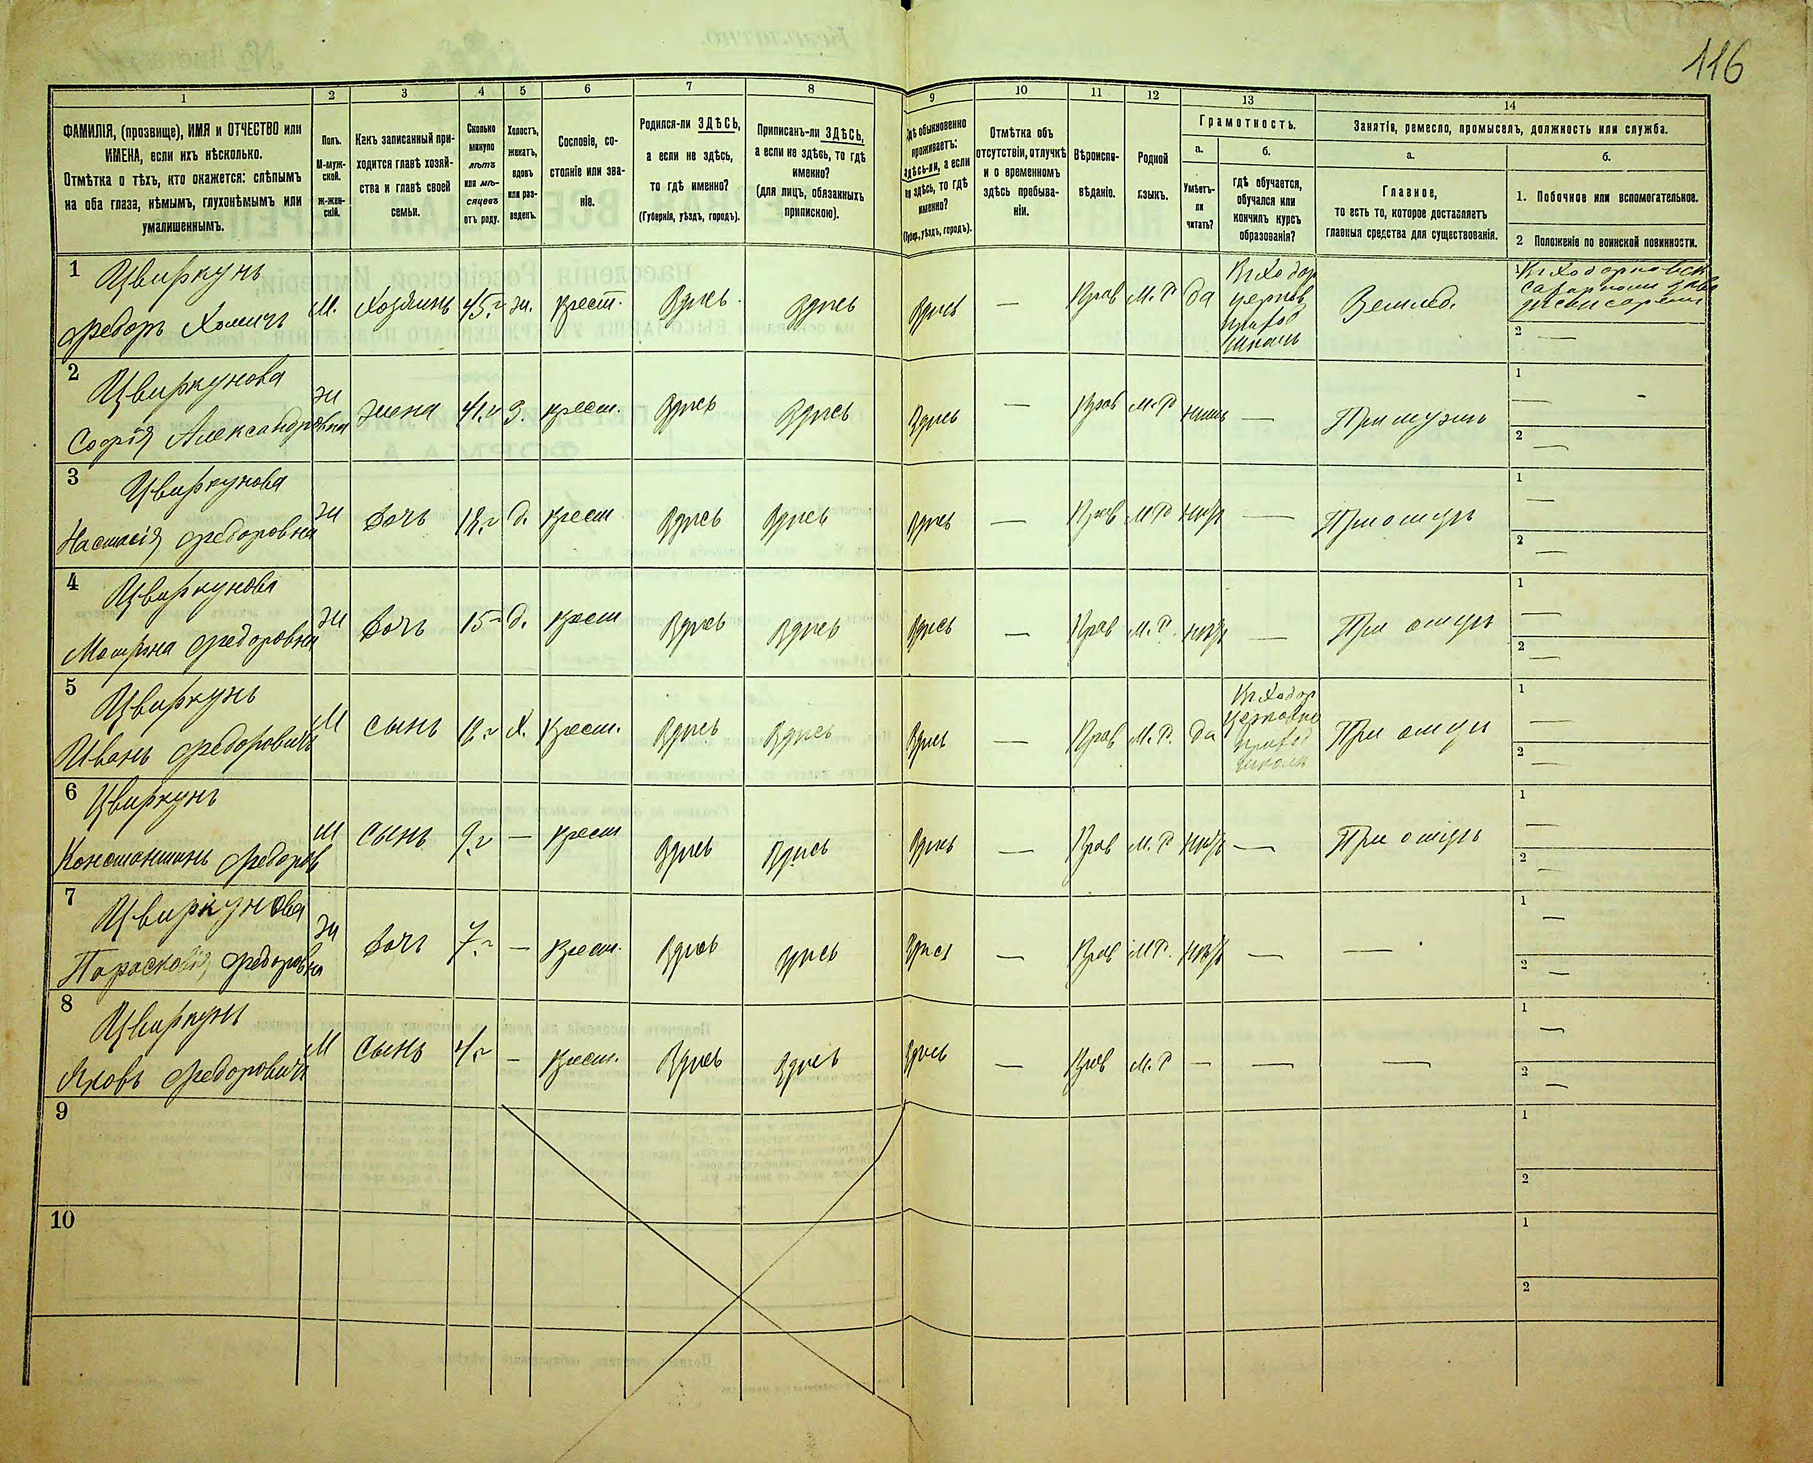 116
1 2 3 4 5 6 7 8 9 10 11 12 13 14
ФАМИЛІЯ, (прозвище), ИМЯ и ОТЧЕСТВО или
ИМЕНА, если ихъ нѣсколько.
Отмѣтка о тѣхъ, кто окажется: слѣпымъ
на оба глаза, нѣмымъ, глухонѣмымъ или
умалишеннымъ.
Полъ.
М-муж-
ской.
Ж-жен-
скій.
Какъ записанный при-
ходится главѣ хозяй-
ства и главѣ своей
семьи.
Сколько
минуло
лѣтъ
или мѣ-
сяцевъ
отъ роду.
Холостъ,
женатъ,
вдовъ
или раз-
веденъ.
Сословіе, со-
стояніе или зва-
ніе.
Родился-ли ЗДѢСЬ,
а если не здѣсь,
то гдѣ именно?
(Губернія, уѣздъ, городъ).
Приписанъ-ли ЗДѢСЬ,
а если не здѣсь, то гдѣ
именно?
(для лицъ, обязанныхъ
припискою).
Гдѣ обыкновенно
проживаетъ:
здѣсь-ли, а если
не здѣсь, то гдѣ
именно?
(Губер., уѣздъ, городъ).
Отмѣтка объ
отсутствіи, отлучкѣ
и о временномъ
здѣсь пребыва-
ніи.
Вѣроиспо-
вѣданіе.
Родной
языкъ.
Грамотность.
а.
Умѣетъ-
ли
читать?
б.
гдѣ обучается,
обучался или
кончилъ курсъ
образованія?
Занятіе, ремесло, промыселъ, должность или служба.
а.
Главное,
то есть то, которое доставляетъ
главныя средства для существованія.
б.
1. Побочное или вспомогательное.
2 Положеніе по воинской повинности.
1 Цвиркунъ
Федоръ Хомичъ М. Хозяинъ 45 г ж. крест. Здѣсь Здѣсь Здѣсь — Прав М. Р да Земled. 1
2 —
2 Цвиркунова
Софія Александровна ж жена 41 г З. крест. Здѣсь Здѣсь Здѣсь — Прав М. Р — При мужѣ 1 —
2 —
3 Цвиркунова
Настасія Федоровна ж Дочь 18 г д. крест Здѣсь Здѣсь Здѣсь — Прав М Р — При отцѣ 1 —
2 —
4 Цвиркунова
Мотрина Федоровна ж Дочь 15 г д. крест Здѣсь Здѣсь Здѣсь — Прав М. Р. — При отцѣ 1 —
2 —
5 Цвиркунъ
Иванъ Федоровичъ М сынъ Х. Крест. Здѣсь Здѣсь Здѣсь — Прав М. Р. да При отцѣ 1 —
2 —
6 Цвиркунъ
Константинъ Федоров М сынъ 9 г — крест Здѣсь Здѣсь Здѣсь — Прав М. Р — При отцѣ 1 —
2 —
7 Цвиркунова
Парасковія Федоровна ж Дочь 7 г — Крест. Здѣсь Здѣсь Здѣсь — Прав М Р. — — 1 —
2 —
8 Цвиркунъ
Яковъ Федоровичъ М сынъ 4 г — Крест. Здѣсь Здѣсь Здѣсь — Прав М. Р — — — 1 —
2 —
9 1
2
10 1
2